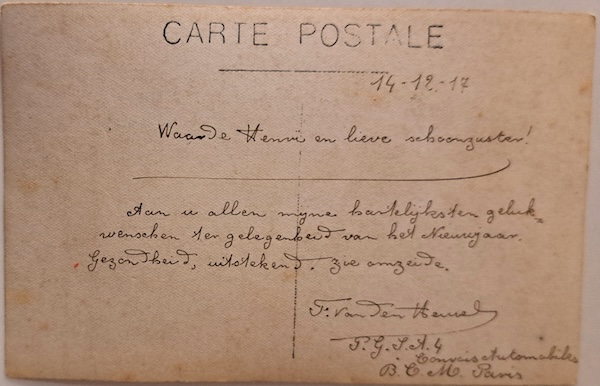 CARTE POSTALE
14-12-17
Waarde Henri en lieve schoonzuster!
Aan u allen myne hartelijksten geluk=
wenschen ter gelegenheid van het Nieuwjaar.
Gezondheid, uitstekend. zie omzeide.
F. Van Den Heuvel
P.G.S.A. 4
Convois Automobiles
B.C.M. Paris